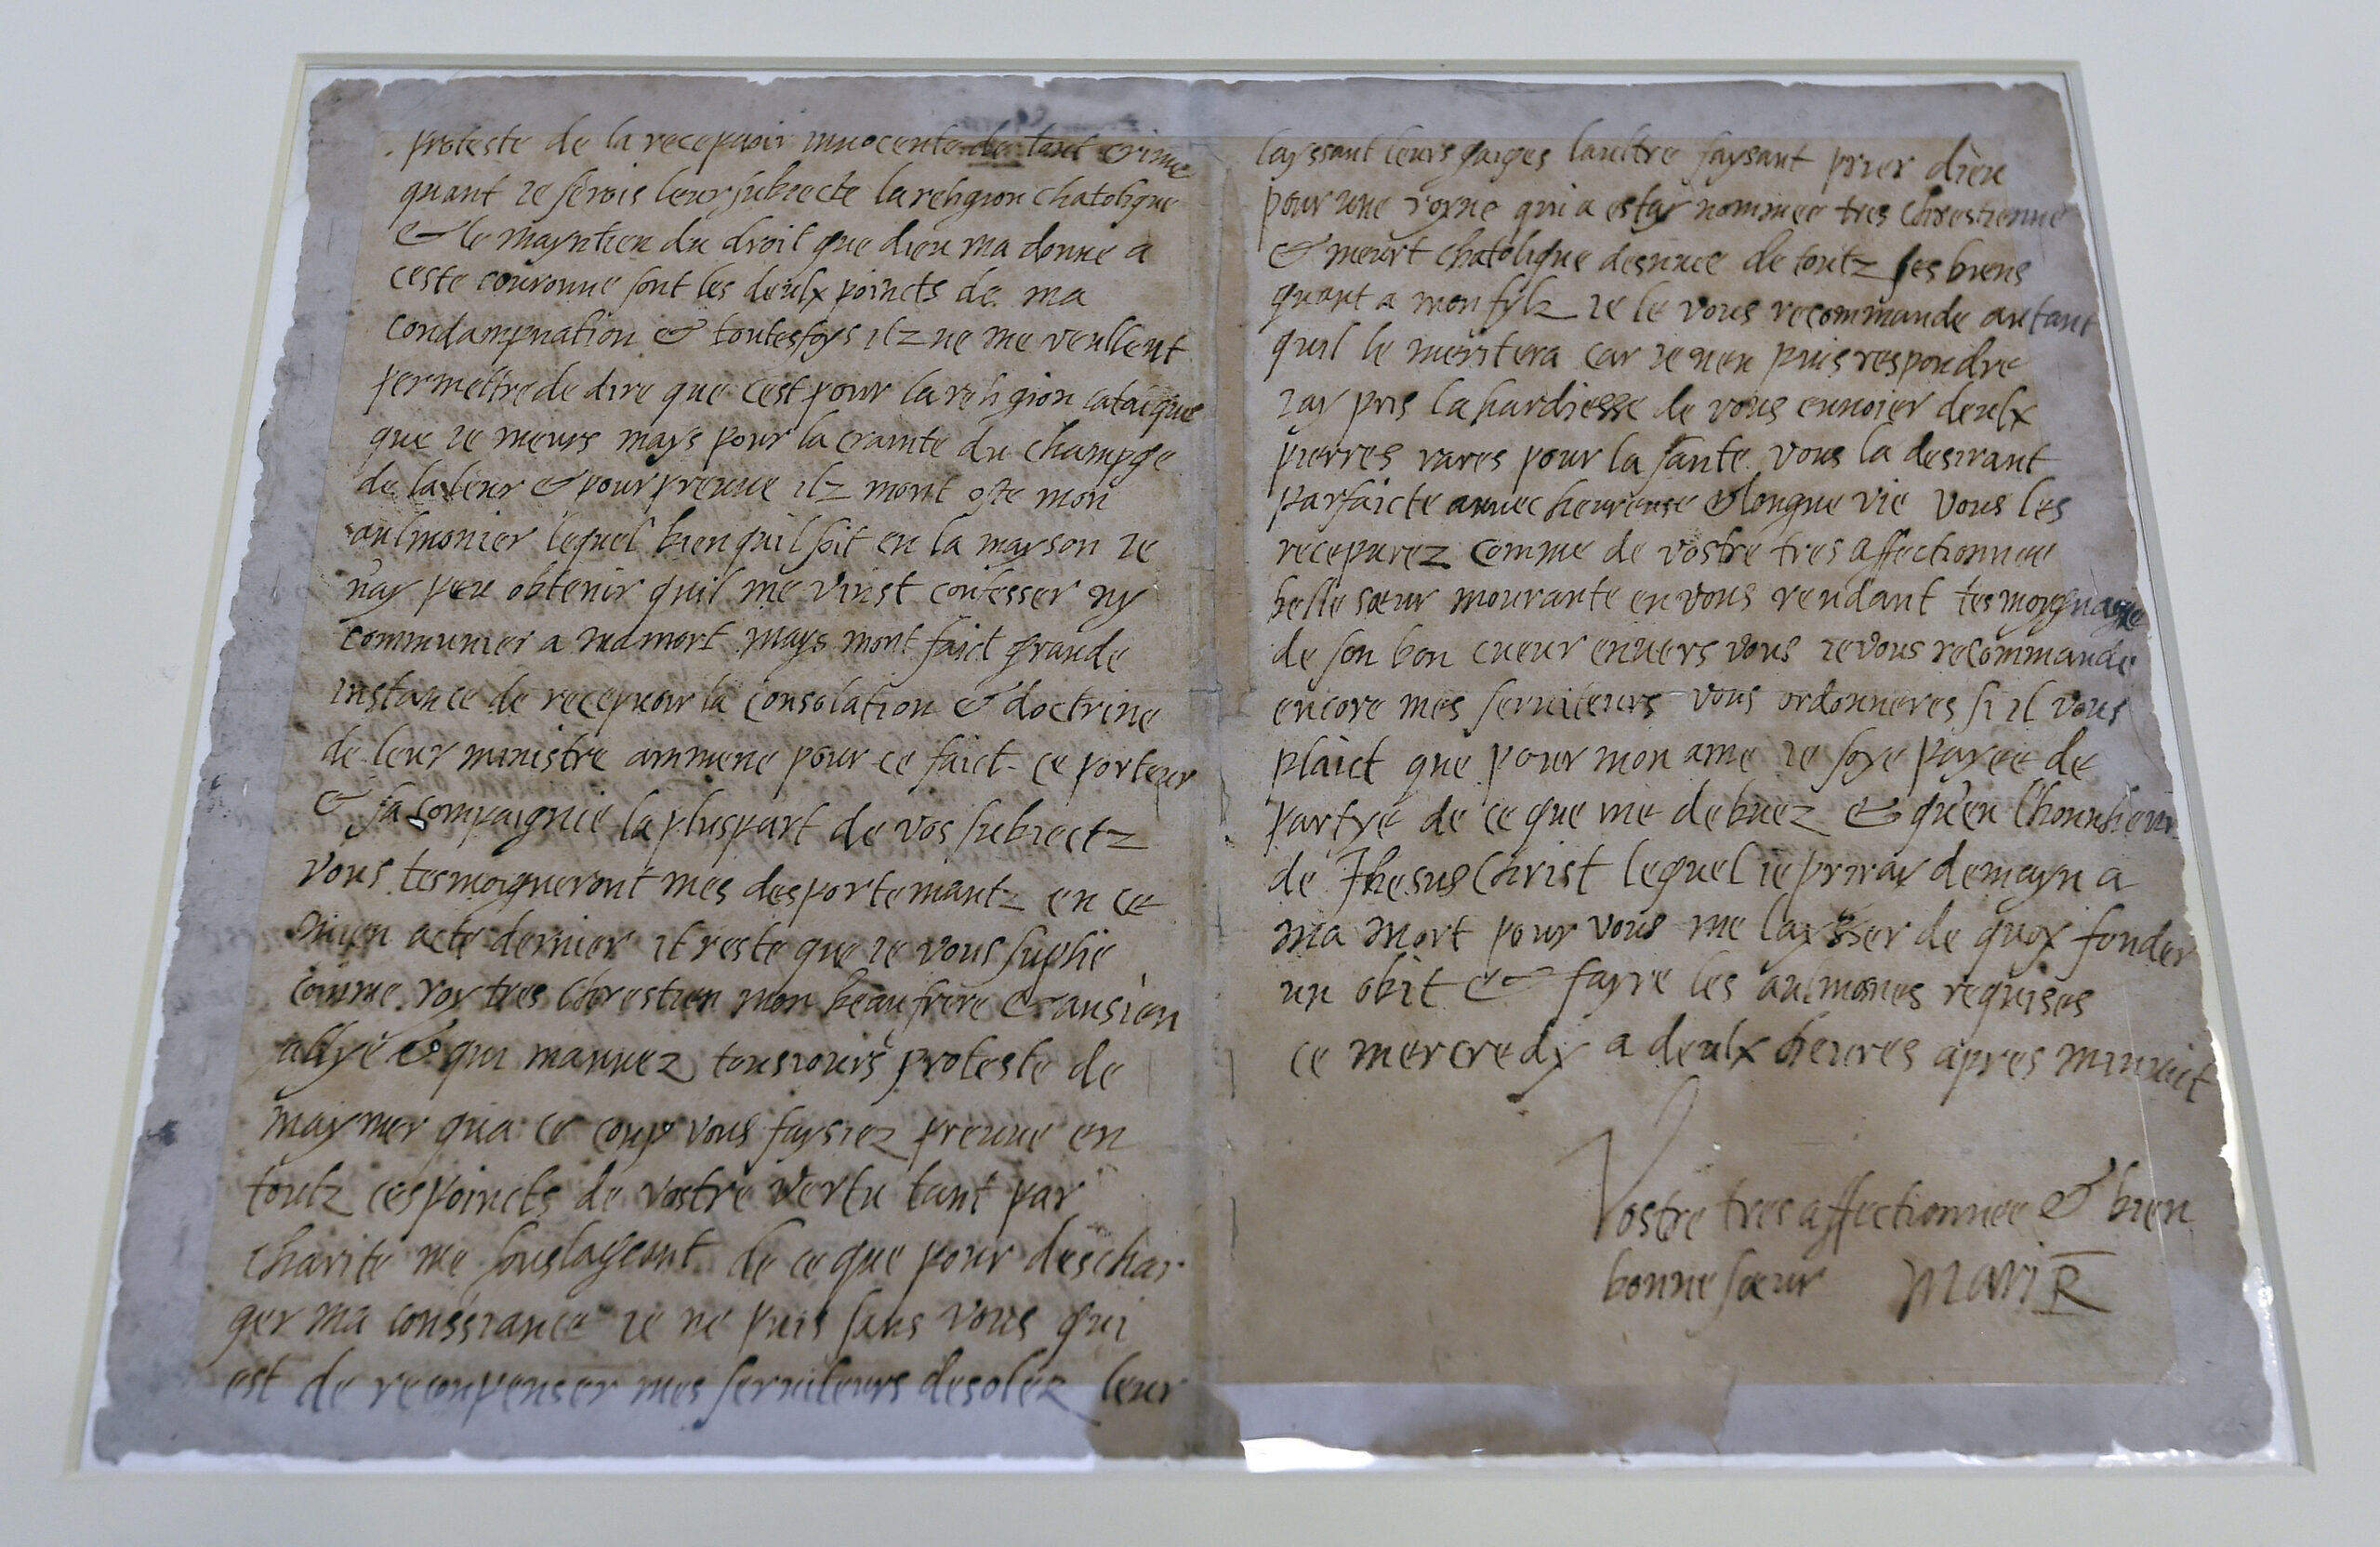 proteste de la recepvoir innocente de tout crime
quant ie serois leur subiecte la religion chatolique
& le mayntien du droit que dieu ma donne a
ceste couronne sont les deulx poincts de ma
condampnation & toutesfoys ilz ne me veullent
permettre de dire que cest pour la religion cataique
que ie meurs mays pour la crainte du champge
de la leur & pour preuue ilz mont oste mon
aulmonier lequel bien quil soit en la mayson ie
nay peu obtenir quil me vinst confesser ny
communier a ma mort mays mont faict grande
instance de recepvoir la consolation & doctrine
de leur ministre ammene pour ce faict ce porteur
& sa compaignie la pluspart de vos subiectz
vous tesmoigneront mes desportemantz en ce
mien acte dernier il reste que ie vous suplie
comme roy tres chrestien mon beau frere & ansien
allye & qui mauuez tousiours proteste de
maymer qua ce coup vous faysiez preuue en
toutz ces poincts de vostre vertu tant par
charite me souslageant de ce que pour deschar
ger ma conssiance ie ne puis sans vous qui
est de reconpenser mes seruiteurs desolez leur
layssant leurs gaiges laultre faysant prier dieu
pour une royne qui a estay nommee tres chrestienne
& meurt chatolique desnuee de toutz ses biens
quant a mon fylz ie le vous recommande autant
quil le meritera car ie nen puis respondre
iay pris la hardiesse de vous enuoier deulx
pierres rares pour la sante vous la desirant
parfaicte auuec heureuse & longue vie vous les
recepurez comme de vostre tres affectionnee
belle sœur mourante en vous rendant tesmoygnage
de son bon cueur enuers vous ie vous recommande
encore mes seruiteurs vous ordonneres si il vous
plaict que pour mon ame ie soye payee de
partye de ce que me debuez & qu'en l'honnheur
de Jhesus Christ lequel ie priray demayn a
ma mort pour vous me laysser de quoy fonder
un obit & fayre les aulmones requises
ce mercredy a deulx heures apres minuict
Vostre tres affectionnee & bien
bonne sœur Mari R